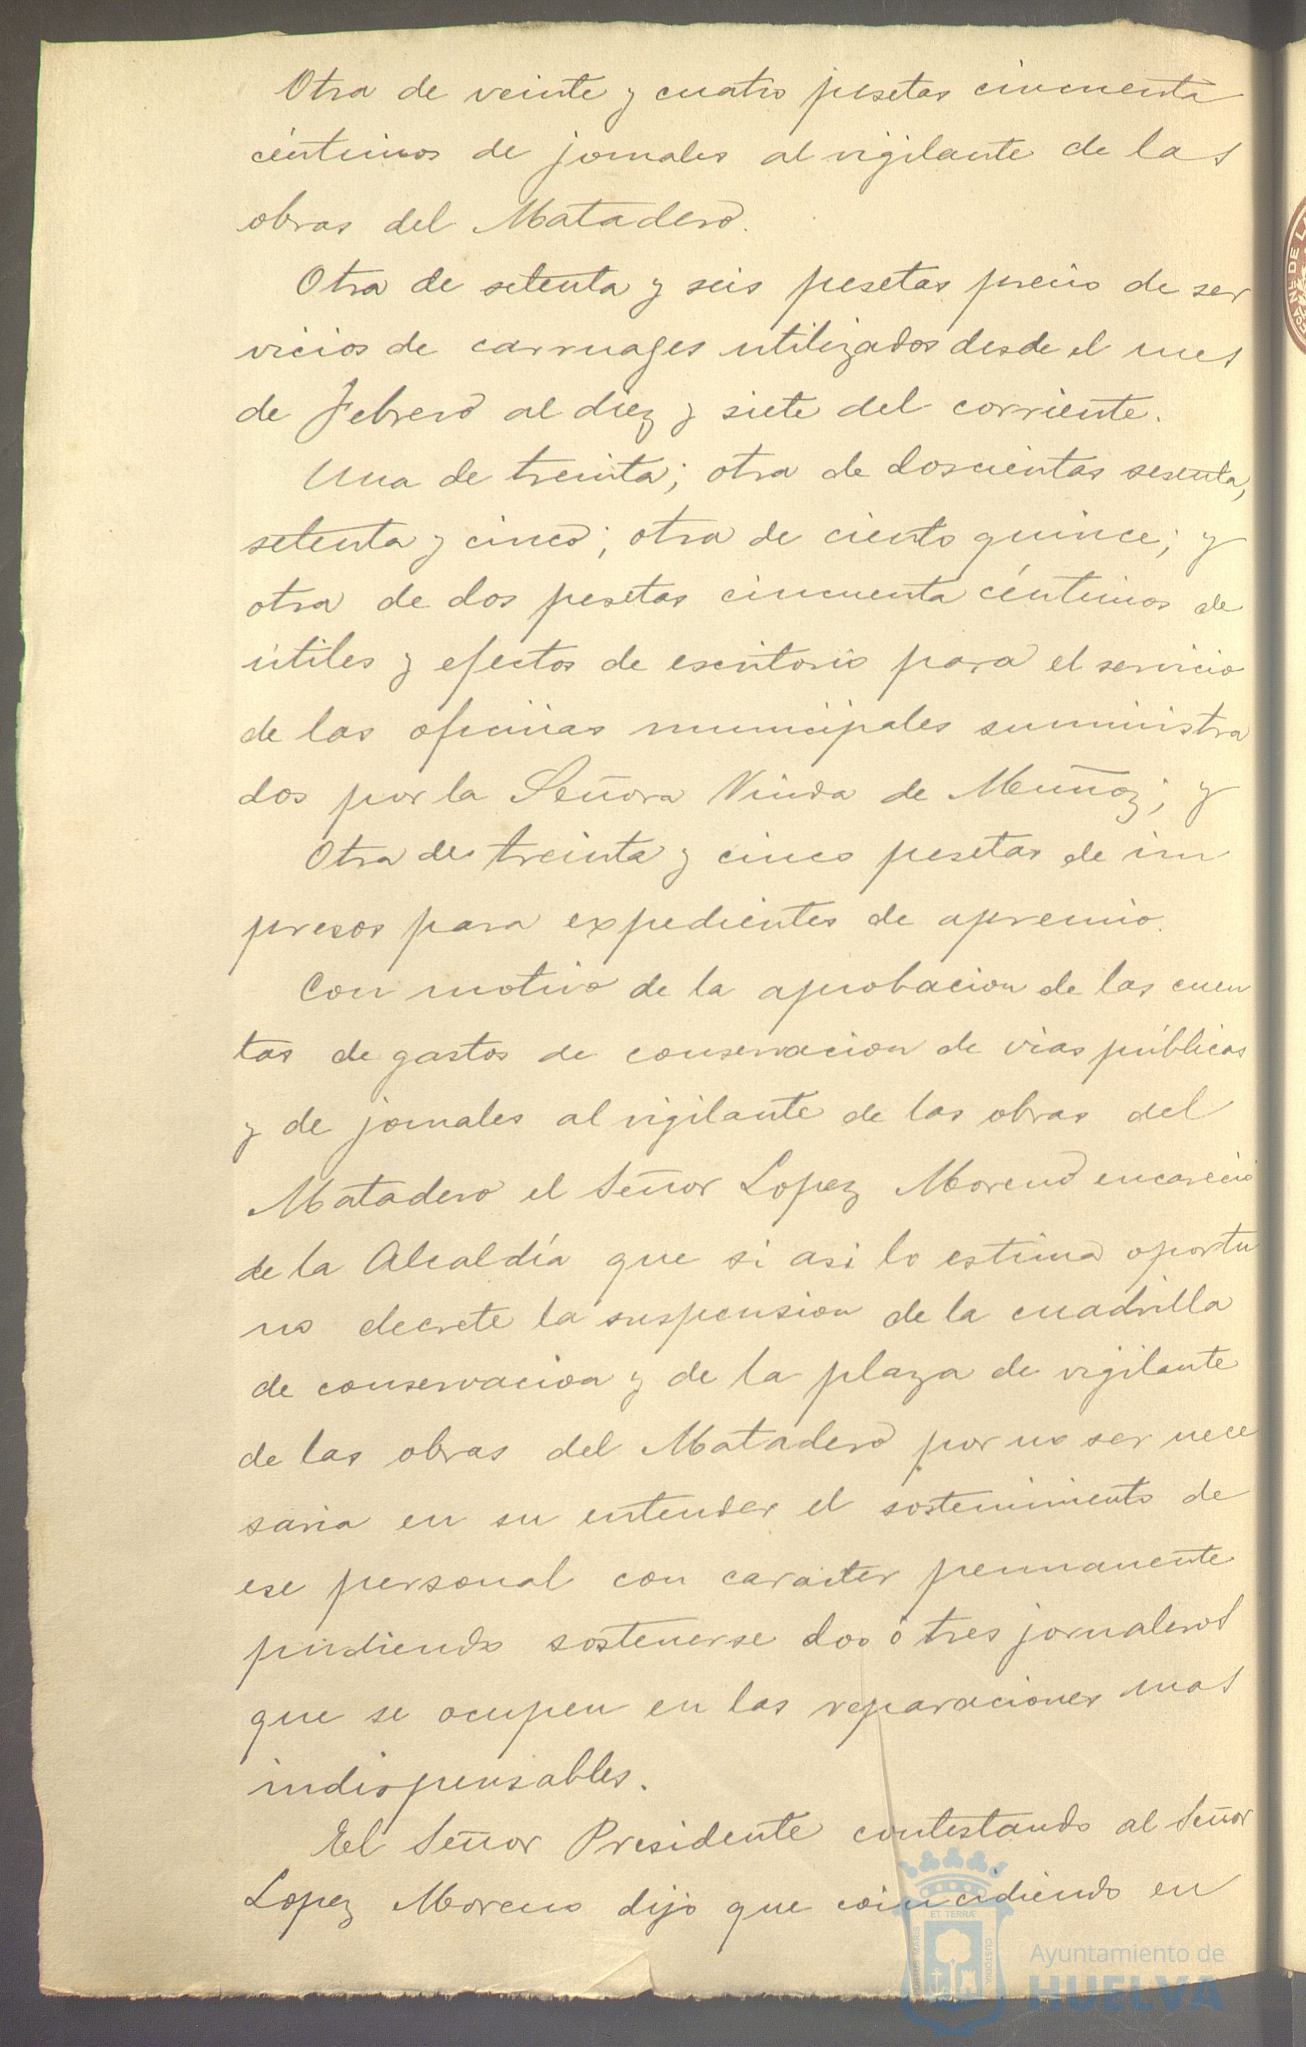 Otra de veinte y cuatro pesetas cincuenta
céntimos de jornales al vigilante de las
obras del Matadero.
Otra de setenta y seis pesetas precio de ser
vicios de carruages utilizados desde el mes
de Febrero al diez y siete del corriente.
Una de treinta; otra de doscientas sesenta,
setenta y cinco; otra de ciento quince; y
otra de dos pesetas cincuenta céntimos de
útiles y efectos de escritorio para el servicio
de las oficinas municipales suministra
dos por la Señora Viuda de Muñoz; y
Otra de treinta y cinco pesetas de im
presos para expedientes de apremio.
Con motivo de la aprobacion de las cuen
tas de gastos de conservacion de vias públicas
y de jornales al vigilante de las obras del
Matadero el Señor Lopez Moreno encareció
de la Alcaldía que si asi lo estima oportu
no decrete la suspension de la cuadrilla
de conservacion y de la plaza de vigilante
de las obras del Matadero por no ser nece
saria en su entender el sostenimiento de
ese personal con caracter permanente
pudiendo sostenerse dos ó tres jornaleros
que se ocupen en las reparaciones mas
indispensables.
El Señor Presidente contestando al Señor
Lopez Moreno dijo que coincidiendo en
Ayuntamiento de
HUELVA